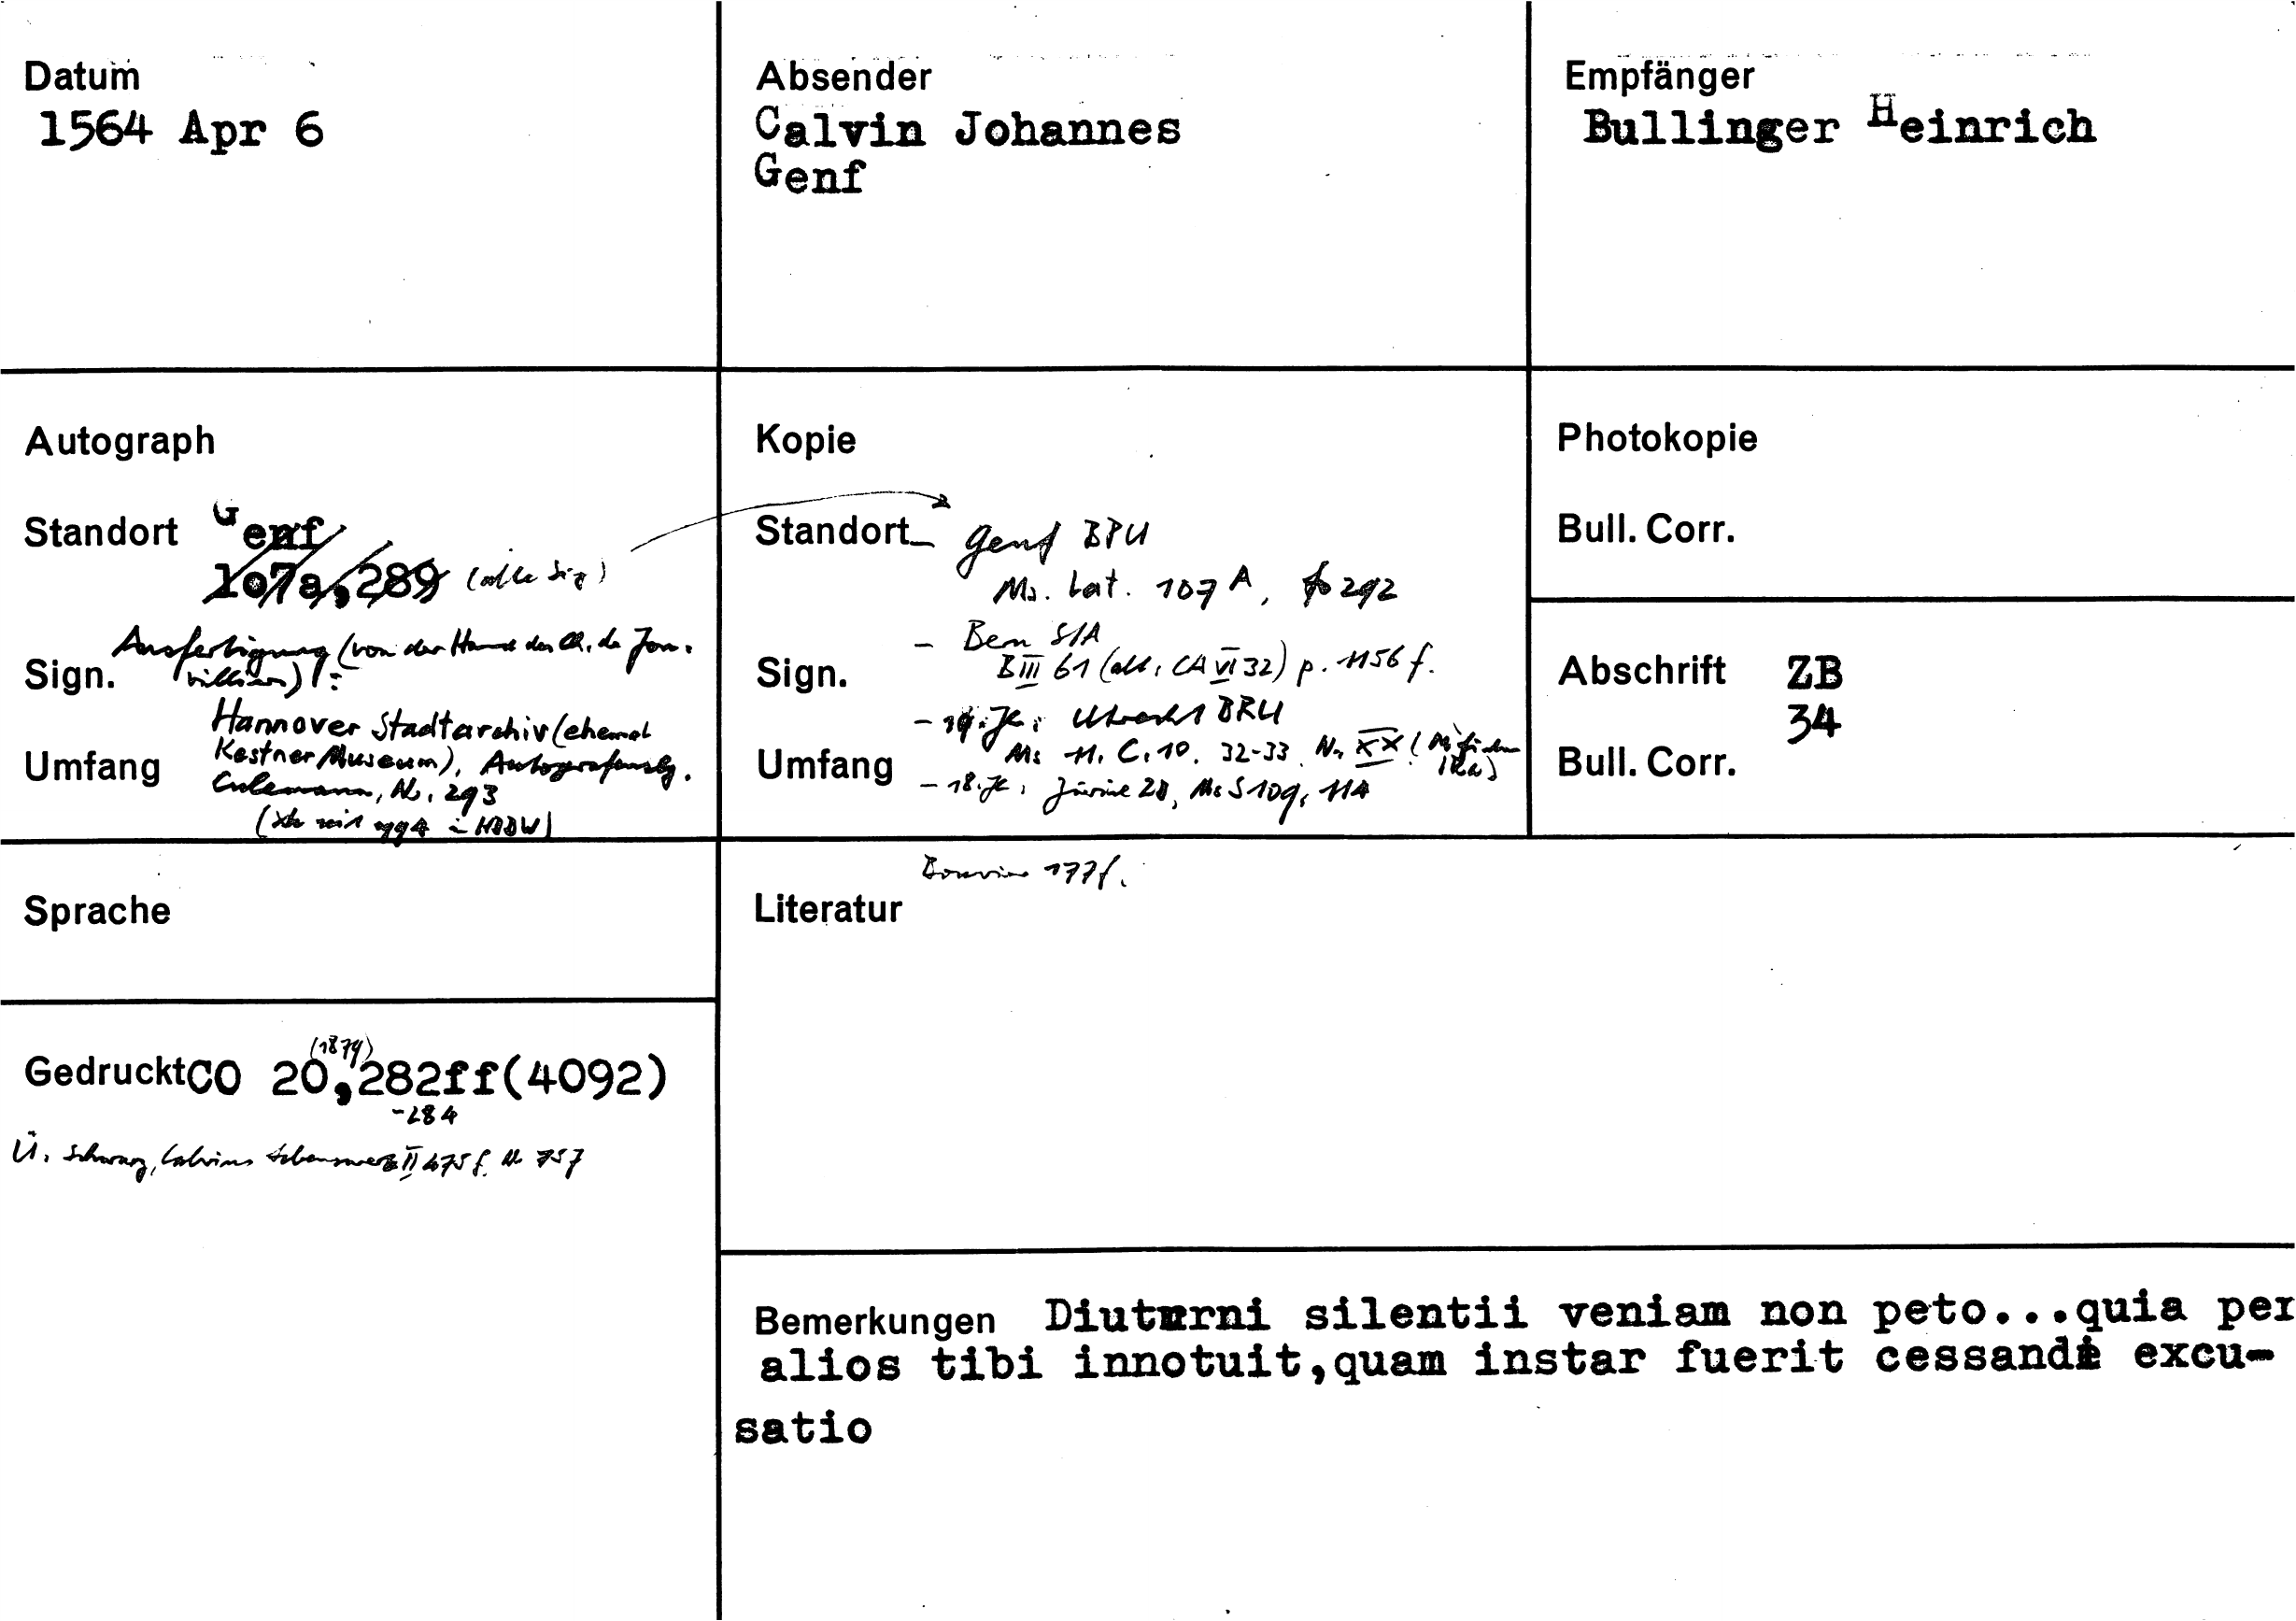 Datum
1564 Apr 6
Absender
Calvin Johannes
Genf
Empfänger
Bullinger Heinrich
Autograph
Standort Genf
107a,289 (alte Sig)
Sign. Ausfertigung (von der Hand des Ch. de Jon-
villiers):
Hannover Stadtarchiv (ehemal
Umfang Kestner Museum), Autografenslg.
Culemann, Nr. 293
(Xk seit 1994 HBBW)
Kopie
Standort - Genf BPU
Ms. lat. 107 A, fo 292
- Bern StA
Sign. B III 61 (alt: CA VI 32) p. 1156 f.
- 19. Jh: Utrecht BRU
Umfang Ms 11. C. 10. 32-33 Nr XX
- 18. Jh: Zürich ZB, Ms S 109, 114
Photokopie
Bull. Corr.
Abschrift ZB
34
Bull. Corr.
Sprache
177f.
Literatur
(1879)
Gedruckt CO 20,282ff(4092)
-284
Ü: Schwarz, Calvins Lebenswerk II 475 f. Nr 757
Bemerkungen Diuturni silentii veniam non peto...quia per
alios tibi innotuit,quam instar fuerit cessandi excu-
satio